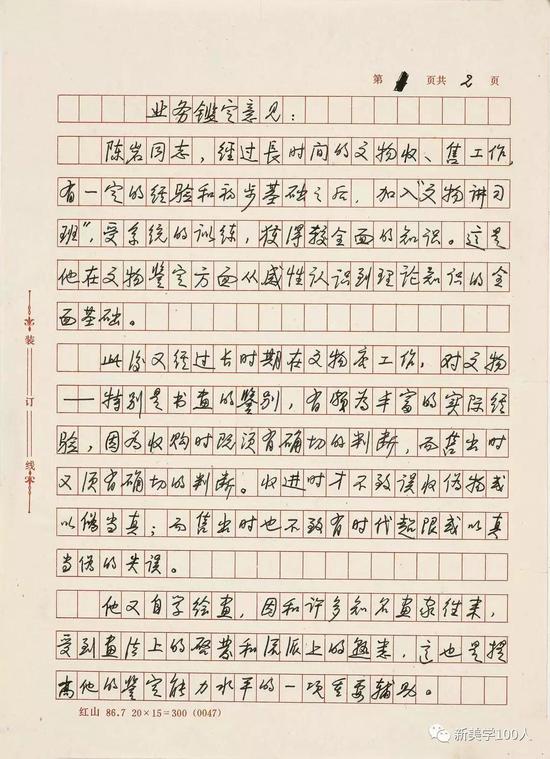 第 1 页共 2 页
业务鉴定意见：
陈岩同志，经过長时间的文物收、售工作，
有一定的经验和初步基础之后，加入“文物讲习
班”，受系统的训练，获得较全面的知识。这是
他在文物鉴定方面从感性认识到理论知识的全
面基础。
此后又经过长时期在文物店工作，对文物
——特别是书画的鉴别，有颇为丰富的实际经
验，因为收购时既须有确切的判断，而售出时
又须有确切的判断。收进时才不致误收伪物或
以伪当真；而售出时也不致有时代超限或以真
当伪的失误。
他又自学绘画，因和许多知名画家往来，
受到画法上的启蒙和流派上的熟悉，这也是提
高他的鉴定能力水平的一项重要辅助。
装订线
红山 86.7 20×15=300 (0047)
新美学100人